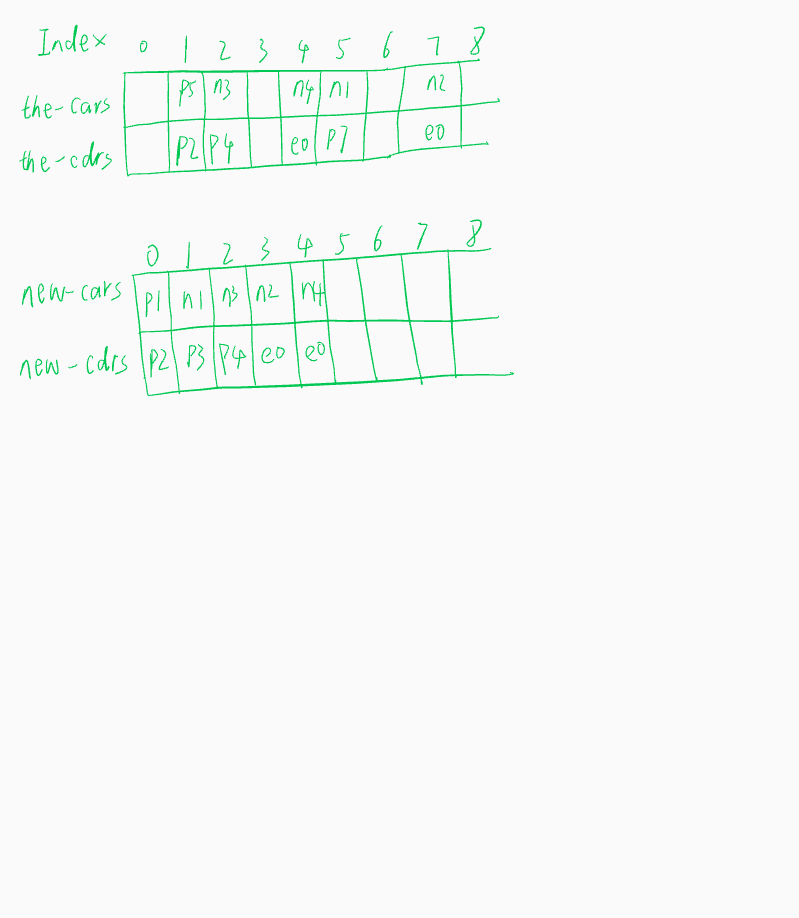 Index 0 1 2 3 4 5 6 7 8
the-cars p5 n3 n4 n1 n2
the-cdrs p2 p4 e0 p7 e0
0 1 2 3 4 5 6 7 8
new-cars p1 n1 n3 n2 n4
new-cdrs p2 p3 p4 e0 e0